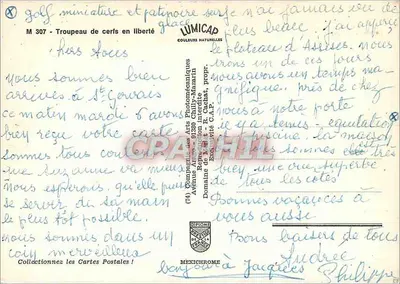 golf miniature et patinoire sur glace
M 307 - Troupeau de cerfs en liberté
LUMICAP
COULEURS NATURELLES
chers tous
nous sommes bien
arrivés à St Gervais
ce matin mardi 6 avons
bien reçu votre carte
sommes tous
Suzanne va mieux
nous espérons qu'elle puisse
se servir de sa main
le plus tôt possible.
nous sommes dans un
coin merveilleux
Collectionnez les Cartes Postales !
(74) Compagnie des Arts Photomécaniques
91320 Chilly-Mazarin
Reproduction interdite
Domaine de - R. Vachat, propr.
Exclusivité C.A.P.
CPARAMA
MEXICHROME
je n'ai jamais rien vu de
plus beau. j'ai aperçu
le plateau d'Assises. nous
irons un de ces jours
nous avons un temps ma-
gnifique. près de chez
nous à notre porte
il y a tennis - equitation
la maison
sommes très
bien, une vue superbe
de tous les côtés
Bonnes vacances à
vous aussi.
Bons baisers de tous
Andrée
bonjour à Jacques
Philippe